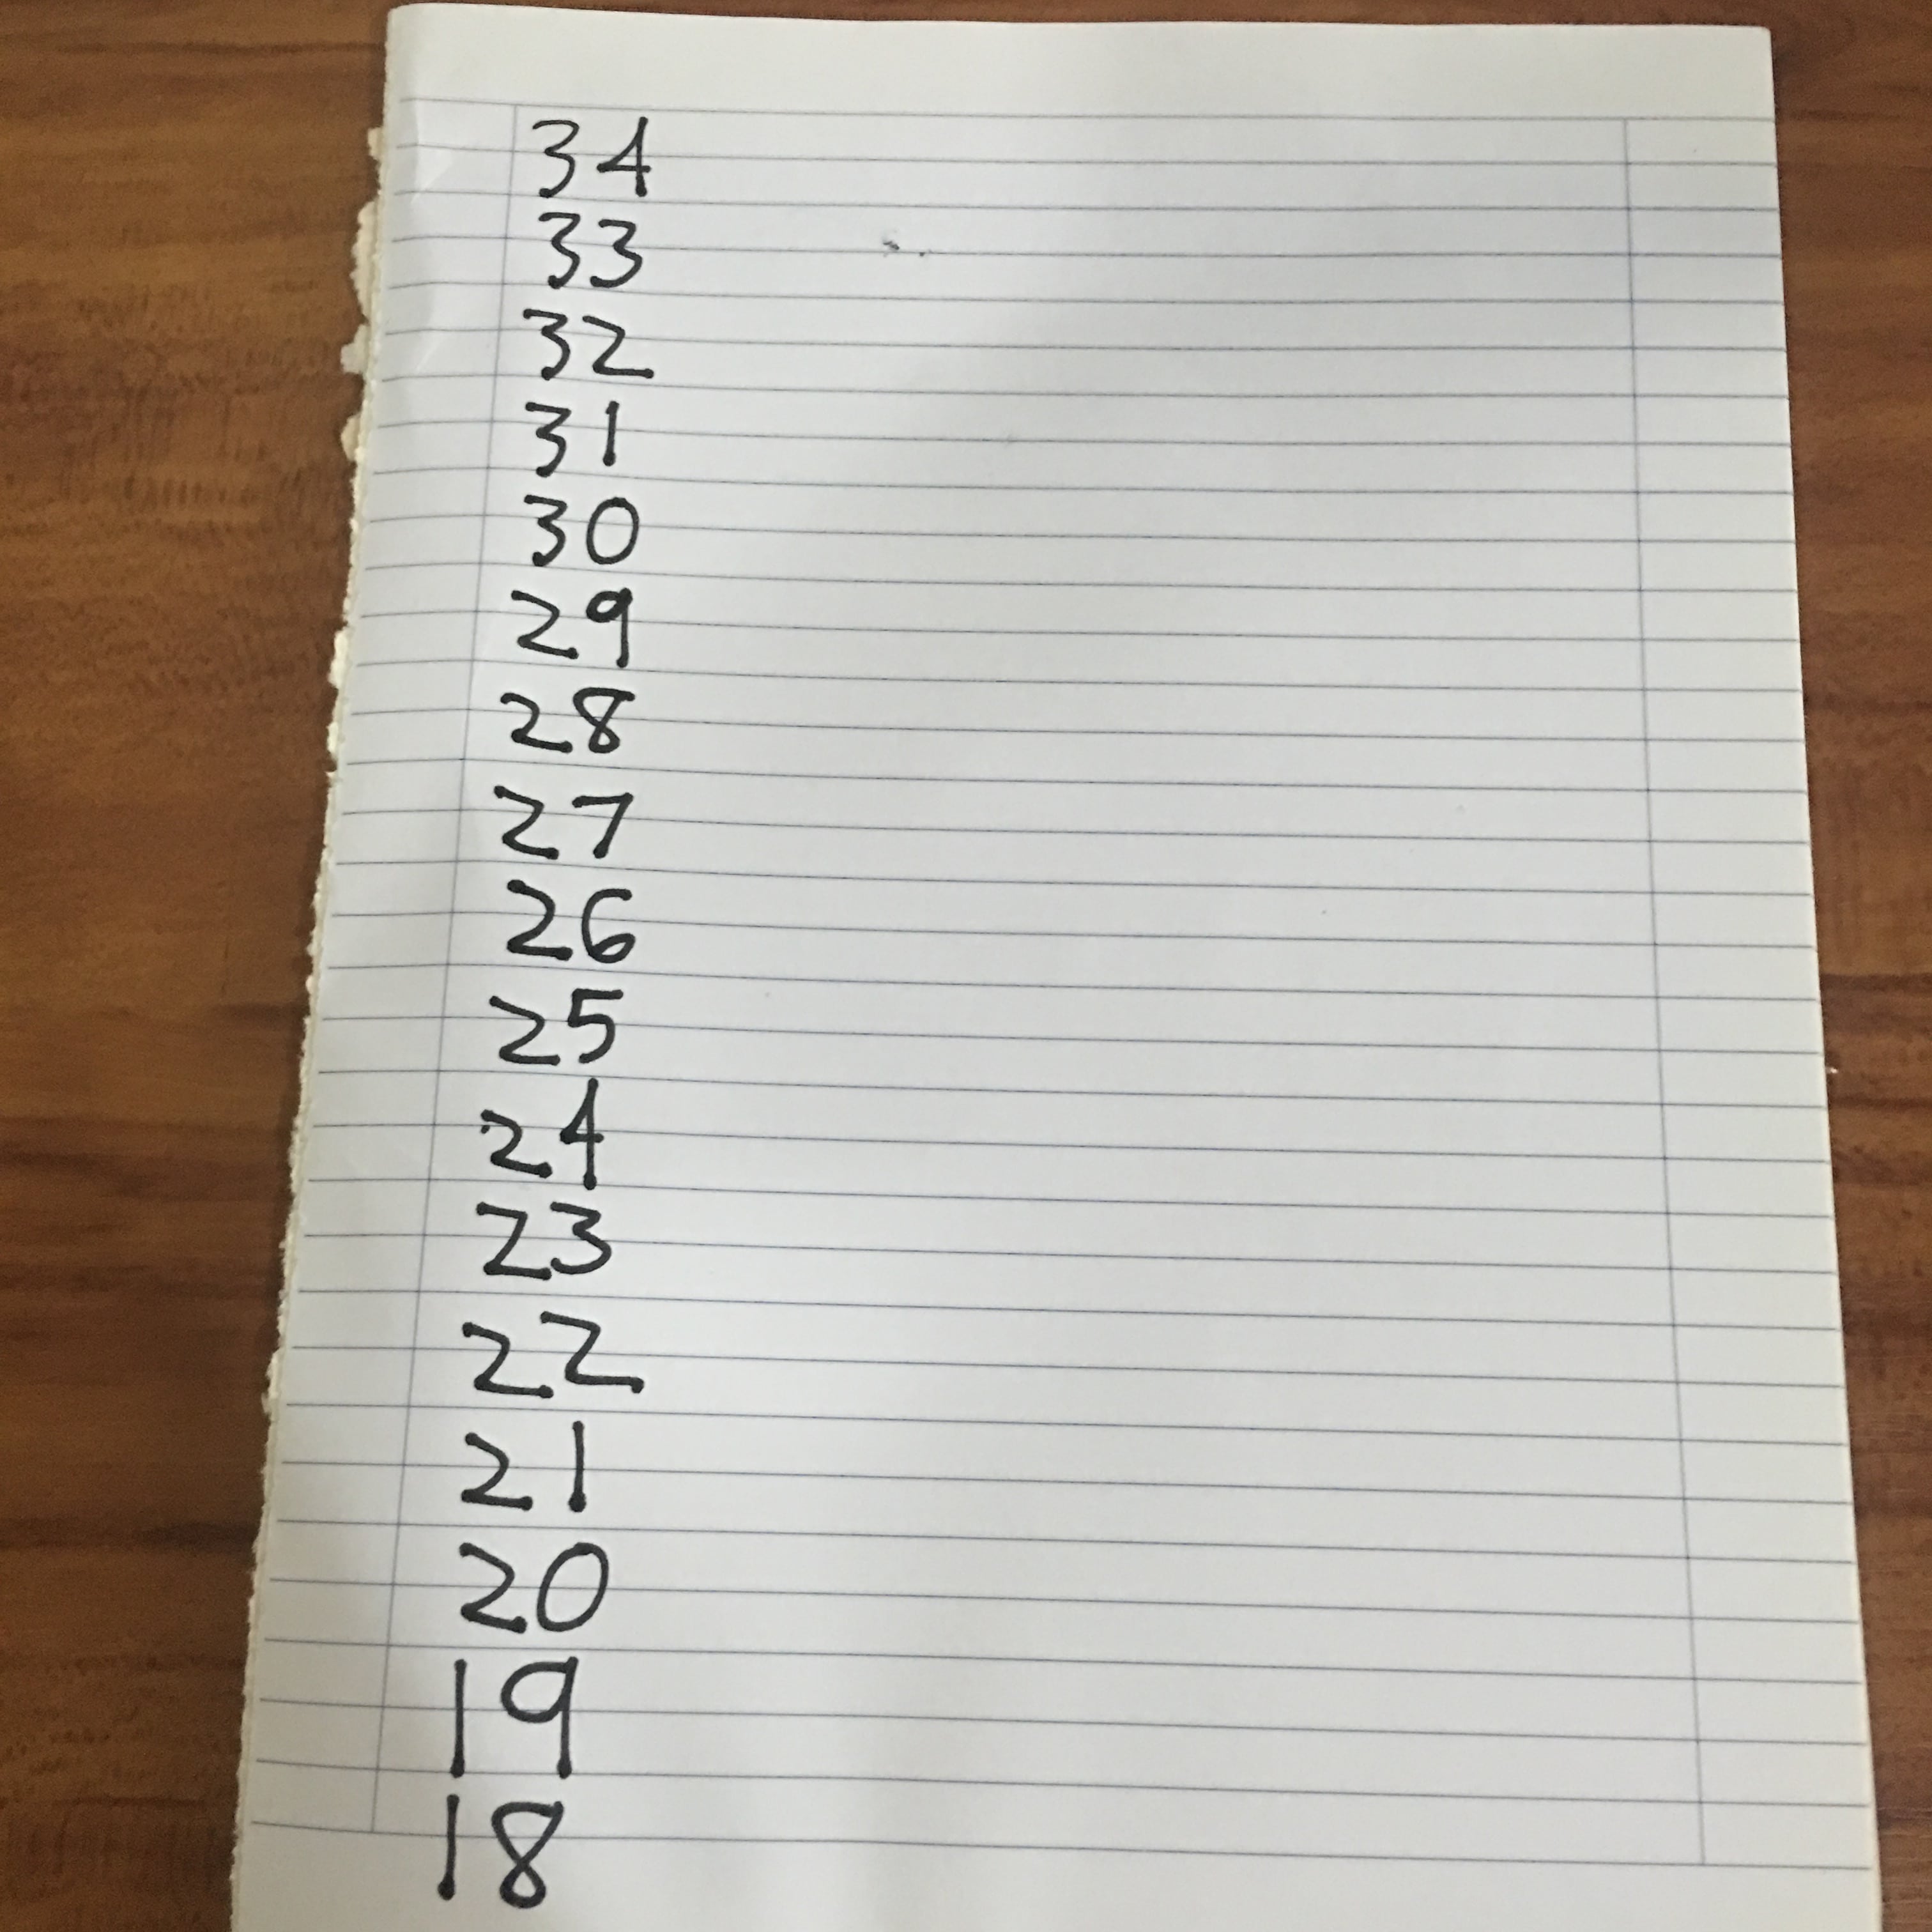 34
33
32
31
30
29
28
27
26
25
24
23
22
21
20
19
18